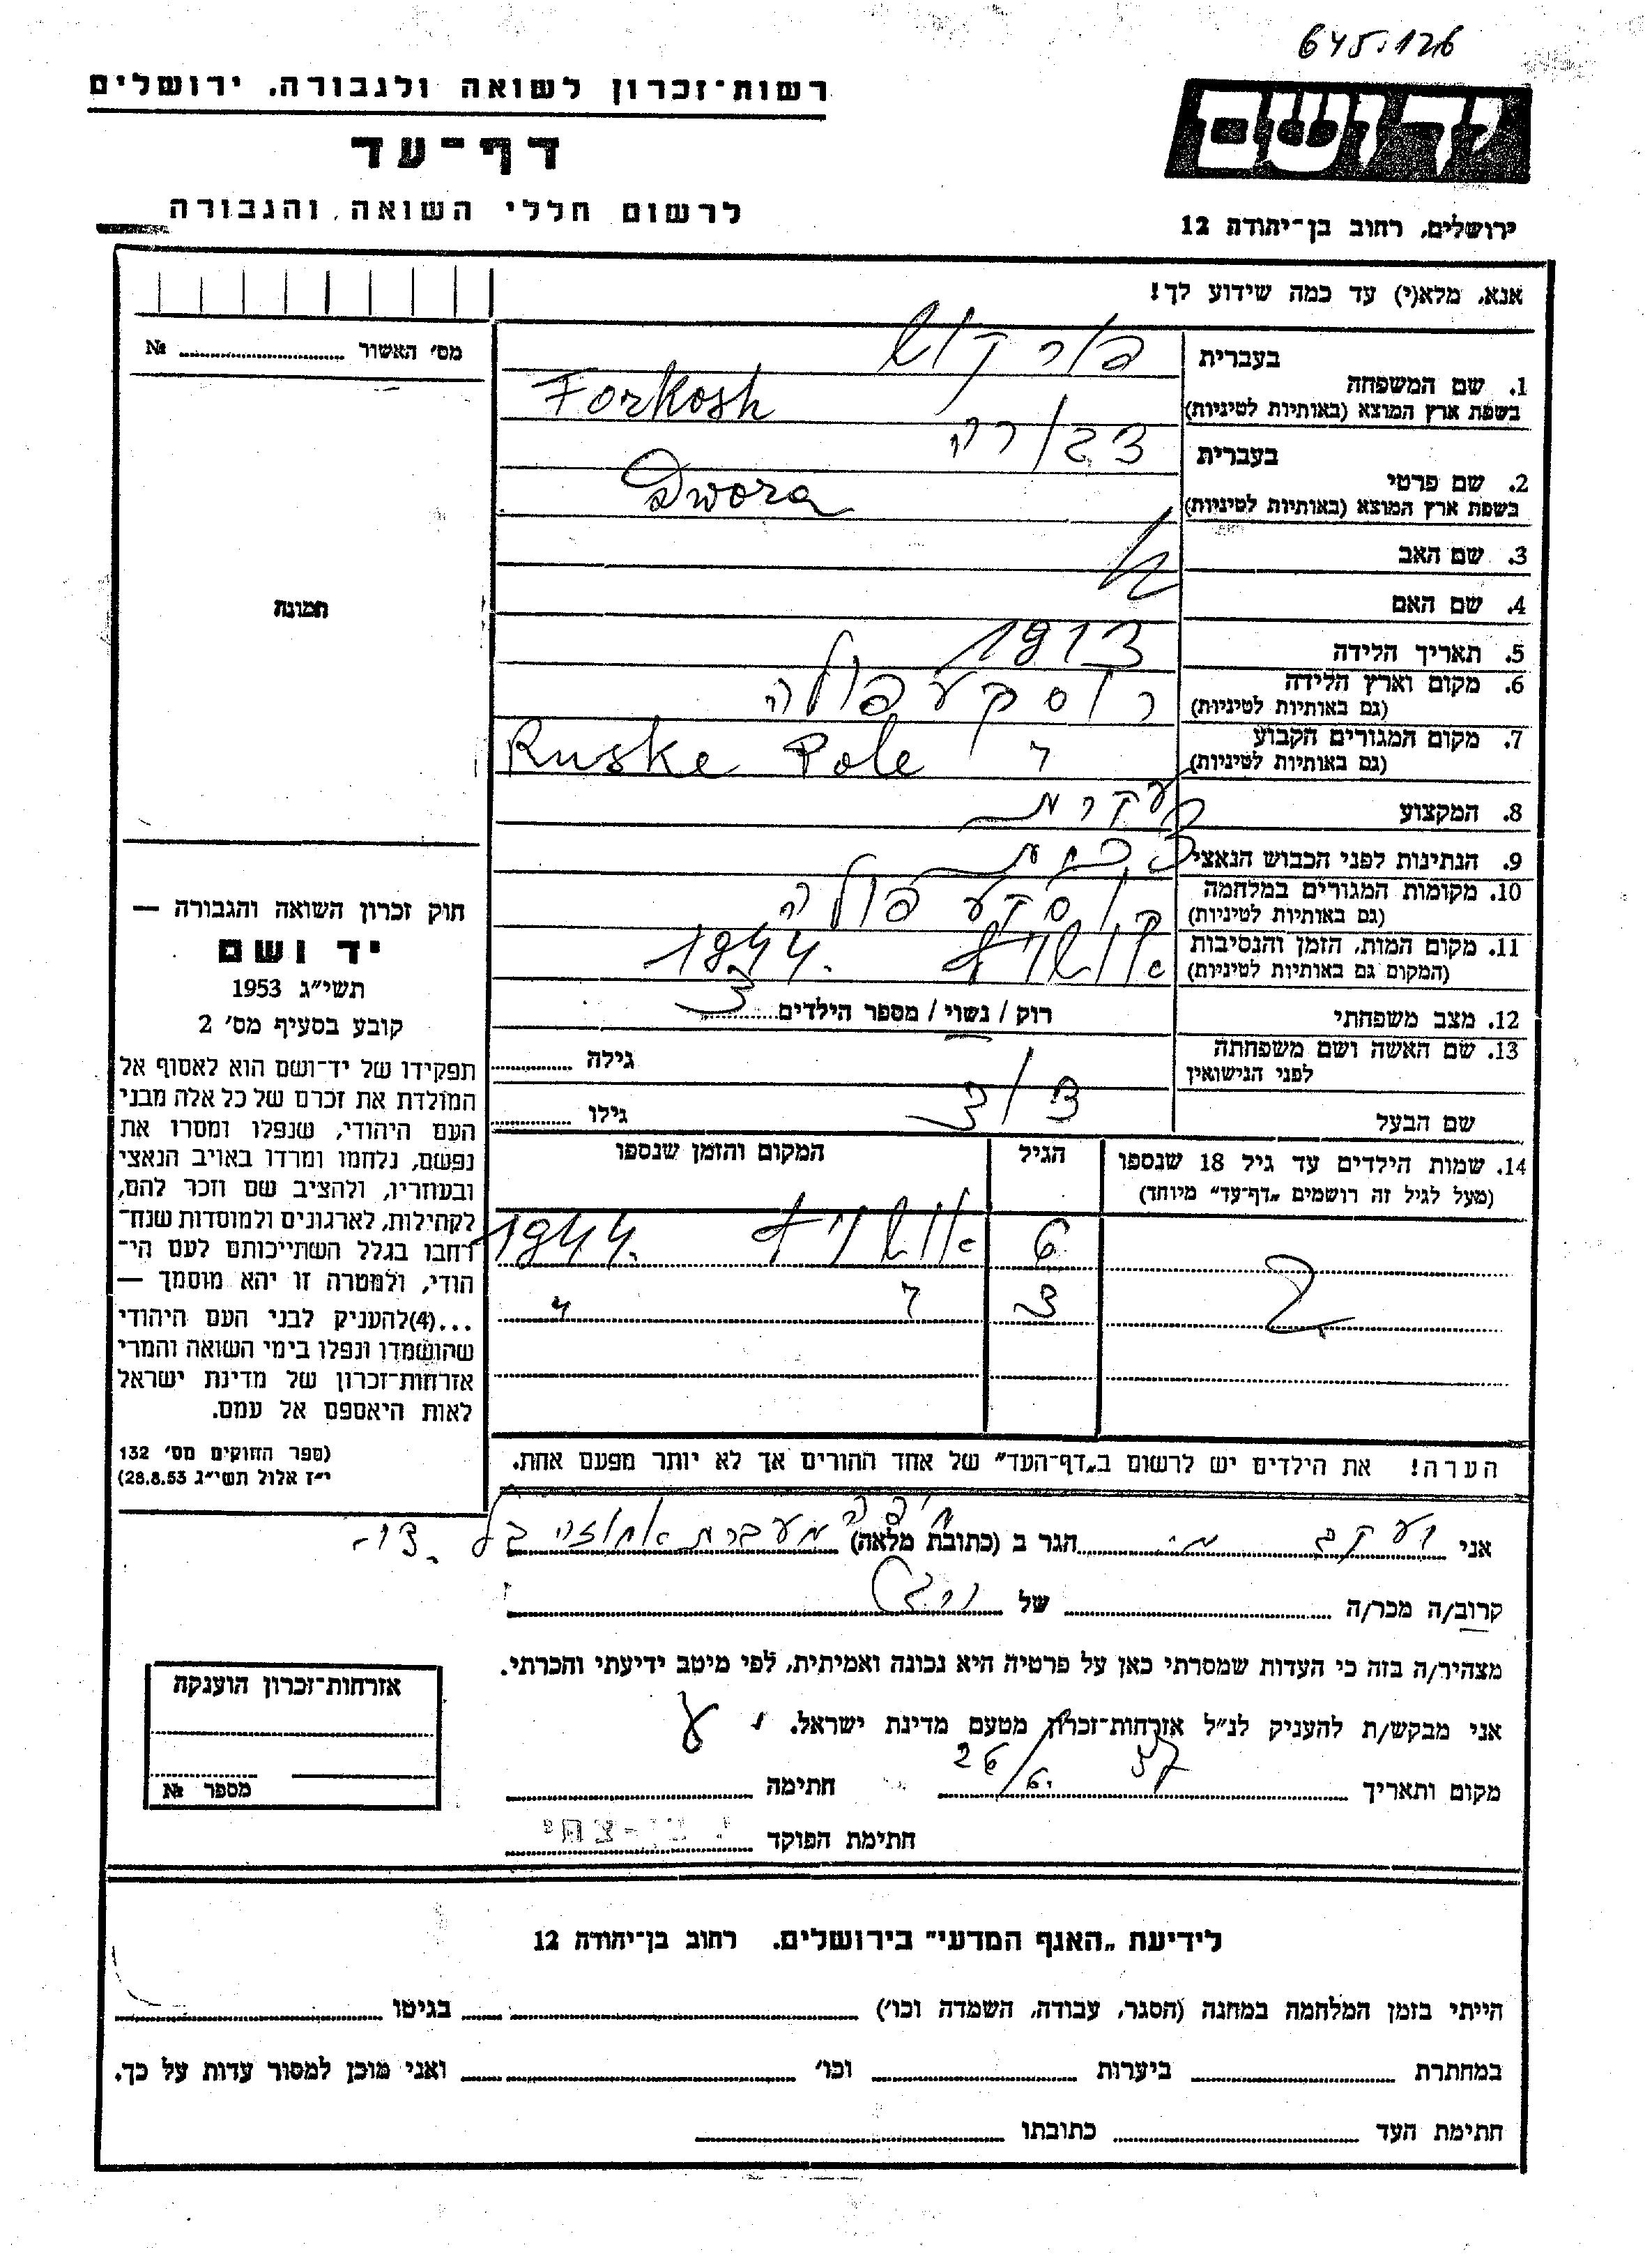 645.126
רשות־זכרון לשואה ולגבורה, ירושלים
יד ושם
דף־עד
לרשום חללי השואה והגבורה
ירושלים, רחוב בן־יהודה 12
אנא, מלא(י) עד כמה שידוע לך!
מס׳ האשור № 
בעברית פורקוש
1. שם המשפחה
בשפת ארץ המוצא (באותיות לטיניות) Forkosh
בעברית דבורה
2. שם פרטי
בשפת ארץ המוצא (באותיות לטיניות) Dwora
3. שם האב
4. שם האם
5. תאריך הלידה 1913
6. מקום וארץ הלידה רוסקע פולה
(גם באותיות לטיניות)
7. מקום המגורים הקבוע Ruske Pole "
(גם באותיות לטיניות)
8. המקצוע עקרת
9. הנתינות לפני הכבוש הנאצי
10. מקומות המגורים במלחמה רוסקע פולה
(גם באותיות לטיניות)
11. מקום המות, הזמן והנסיבות אושויץ 1944.
(המקום גם באותיות לטיניות)
12. מצב משפחתי רוק / נשוי / מספר הילדים 3
13. שם האשה ושם משפחתה גילה
לפני הנישואין
שם הבעל דוד גילו
14. שמות הילדים עד גיל 18 שנספו הגיל המקום והזמן שנספו
(מעל לגיל זה רושמים „דף־עד״ מיוחד)
2 6 אושויץ 1944.
3 " "
הערה! את הילדים יש לרשום ב„דף־העד״ של אחד ההורים אך לא יותר מפעם אחת.
תמונה
חוק זכרון השואה והגבורה —
יד ושם
תשי״ג 1953
קובע בסעיף מס׳ 2
תפקידו של יד־ושם הוא לאסוף אל
המולדת את זכרם של כל אלה מבני
העם היהודי, שנפלו ומסרו את
נפשם, נלחמו ומרדו באויב הנאצי
ובעוזריו, ולהציב שם וזכר להם,
לקהילות, לארגונים ולמוסדות שנח־
רחבו בגלל השתייכותם לעם הי־
הודי, ולמטרה זו יהא מוסמך —
...(4)להעניק לבני העם היהודי
שהושמדו ונפלו בימי השואה והמרי
אזרחות־זכרון של מדינת ישראל
לאות היאספם אל עמם.
(ספר החוקים מס׳ 132
י״ז אלול תשי״ג 28.8.53)
חיפה
אני יעקב הגר ב (כתובת מלאה) מעברת אחוזה
קרוב/ה מכר/ה של
מצהיר/ה בזה כי העדות שמסרתי כאן על פרטיה היא נכונה ואמיתית, לפי מיטב ידיעתי והכרתי.
אני מבקש/ת להעניק לנ״ל אזרחות־זכרון מטעם מדינת ישראל.
מקום ותאריך 26/6. 57 חתימה
חתימת הפוקד י. בן-צחי
אזרחות־זכרון הוענקה
מספר №
לידיעת „האגף המדעי״ בירושלים. רחוב בן־יהודה 12
הייתי בזמן המלחמה במחנה (הסגר, עבודה, השמדה וכו׳) בגיטו
במחתרת ביערות וכו׳ ואני מוכן למסור עדות על כך.
חתימת העד כתובתו